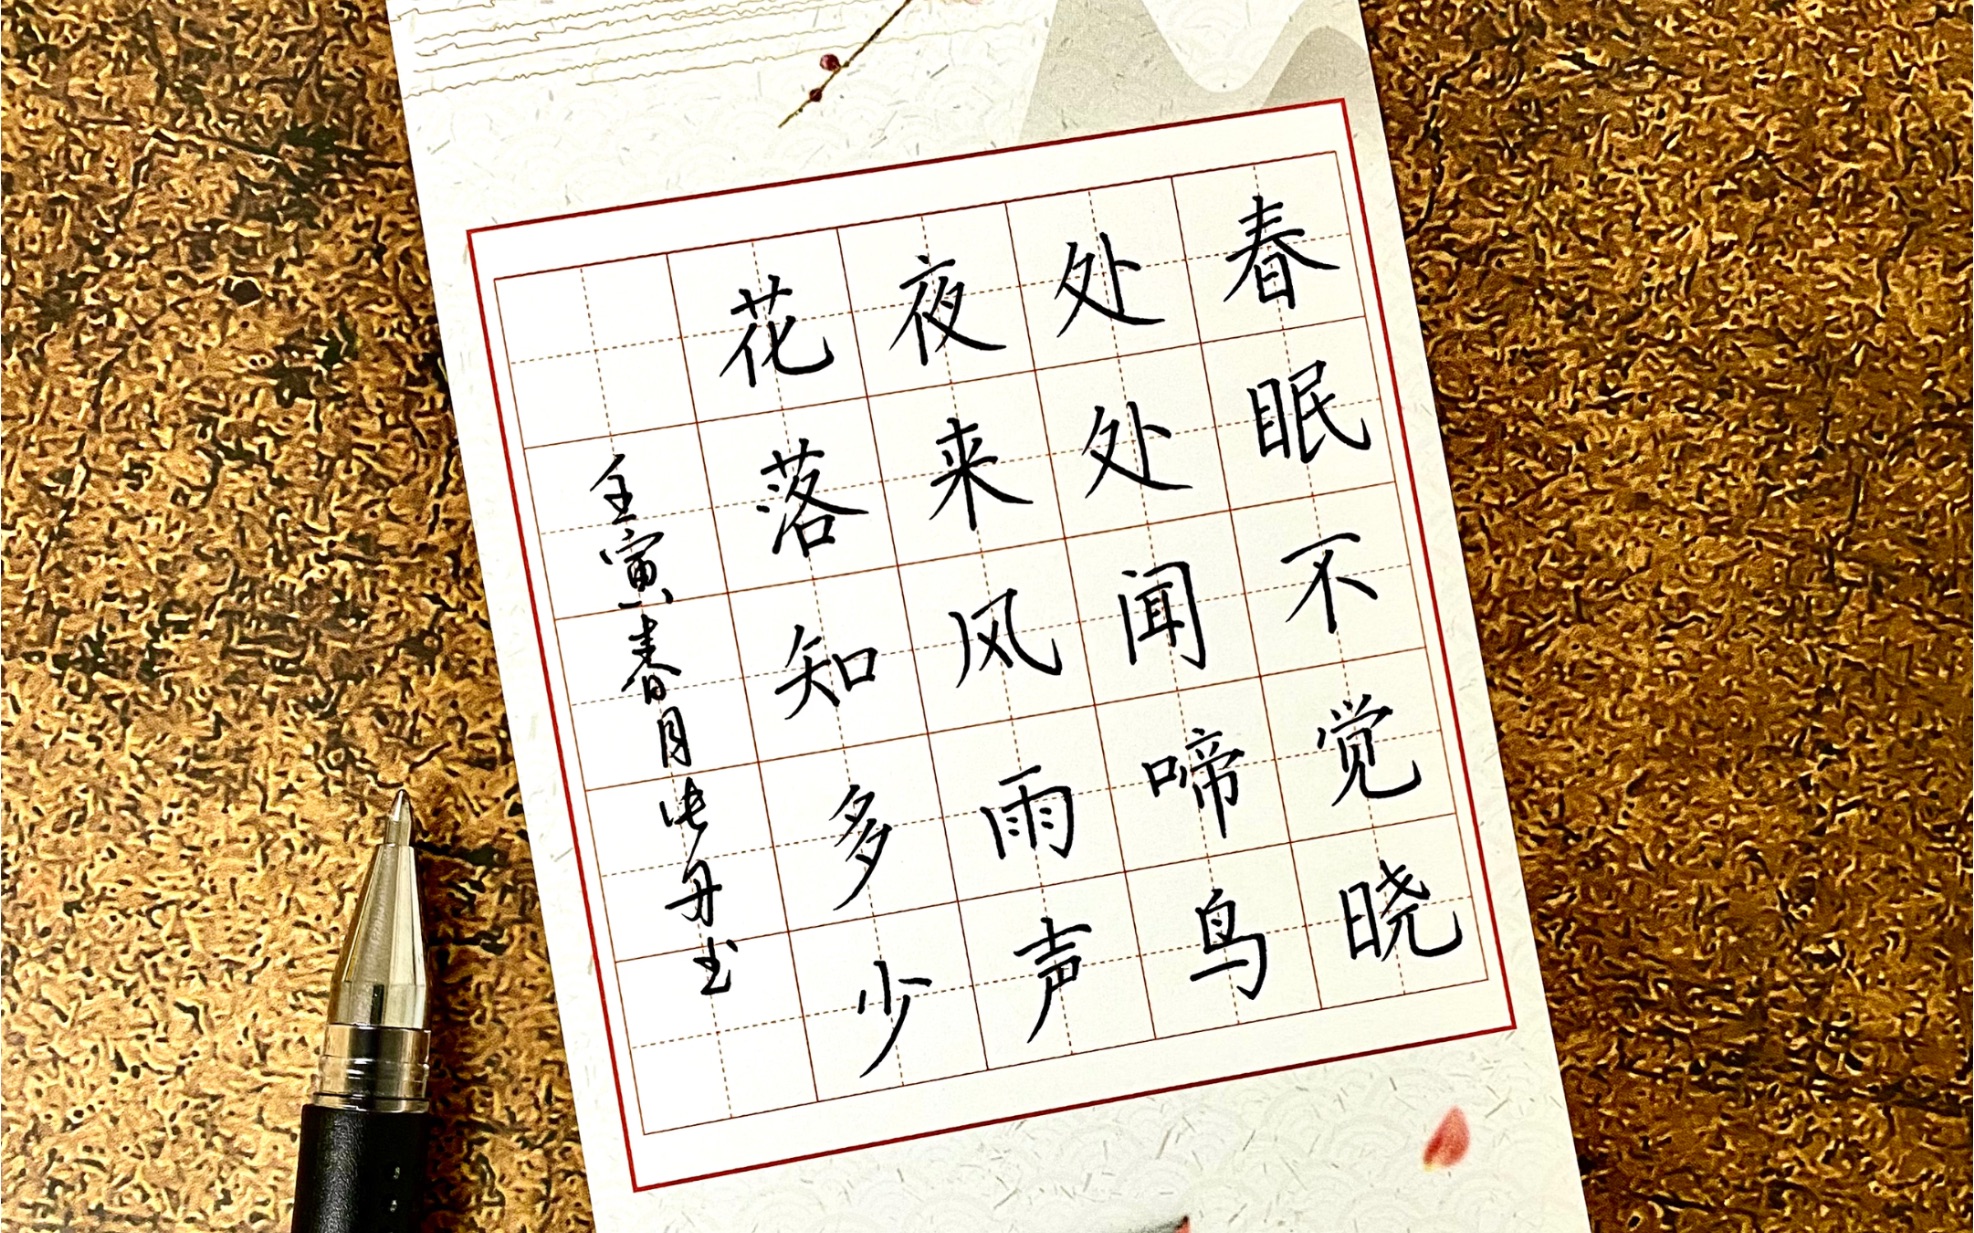 春眠不觉晓
处处闻啼鸟
夜来风雨声
花落知多少
壬寅春月张丹书